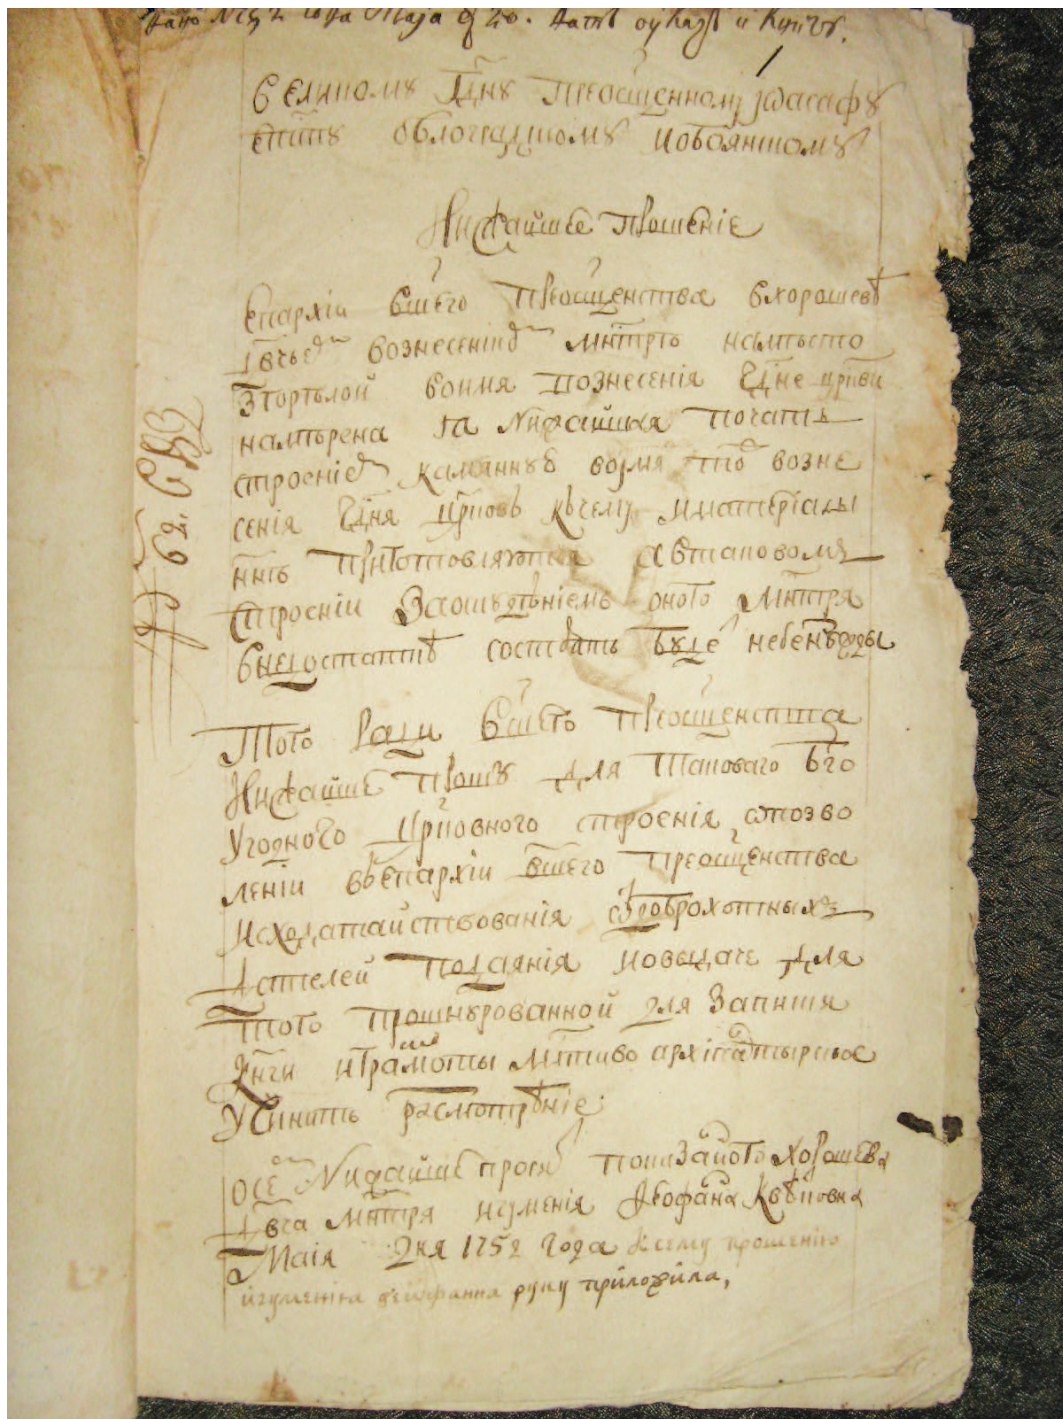 1752 года Маїа 20. датъ оуказъ и книгу.
Великому Гдну Преосщенному Іоасафу
еппу Белоградскому и Обоянскому
Нижайшее Прошение
Епархіи вшего Преосщенства в Хорошевѣ
двчьем вознесенском мнтрѣ на мѣсто
згорѣлой во имя вознесенія Гдне цркви
намѣрена я нижайшая почать
строением каменную во имя то возне
сенія Гдня црковь к чему и матеріалы
ннѣ приготовляются а в таковомъ
строеніи за оскудѣніемъ оного мнтря
в недостаткѣ состоять буде не без нужды
Того ради вшего Преосщенства
Нижайше прошу для таковаго бго
угодного црковного строенія, о позво
леніи въ епархіи вшего преосщенства
исходатайствования от доброхотныхъ
дателей подаянія и о выдаче для
того прошнурованной для записки
книги и грамоты млтивое архипастырское
учинить расмотрѣніе.
О сем нижайше просит показанного Хорошева
двча мнтря игуменія Феофана Квѣковна
Маія дня 1752 года к сему прошению
игуменіа феофанна руку приложила,